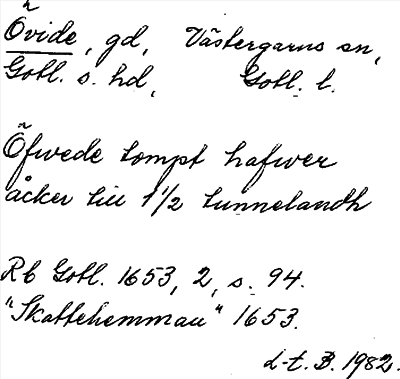 Övide, gd, Västergarns sn,
Gotl. s. hd, Gotl. l.
Öfwede tompt hafwer
åcker till 1 1/2 tunnelandh
Rb Gotl. 1653, 2, s. 94.
"Skattehemman" 1653.
L-t. B. 1982.